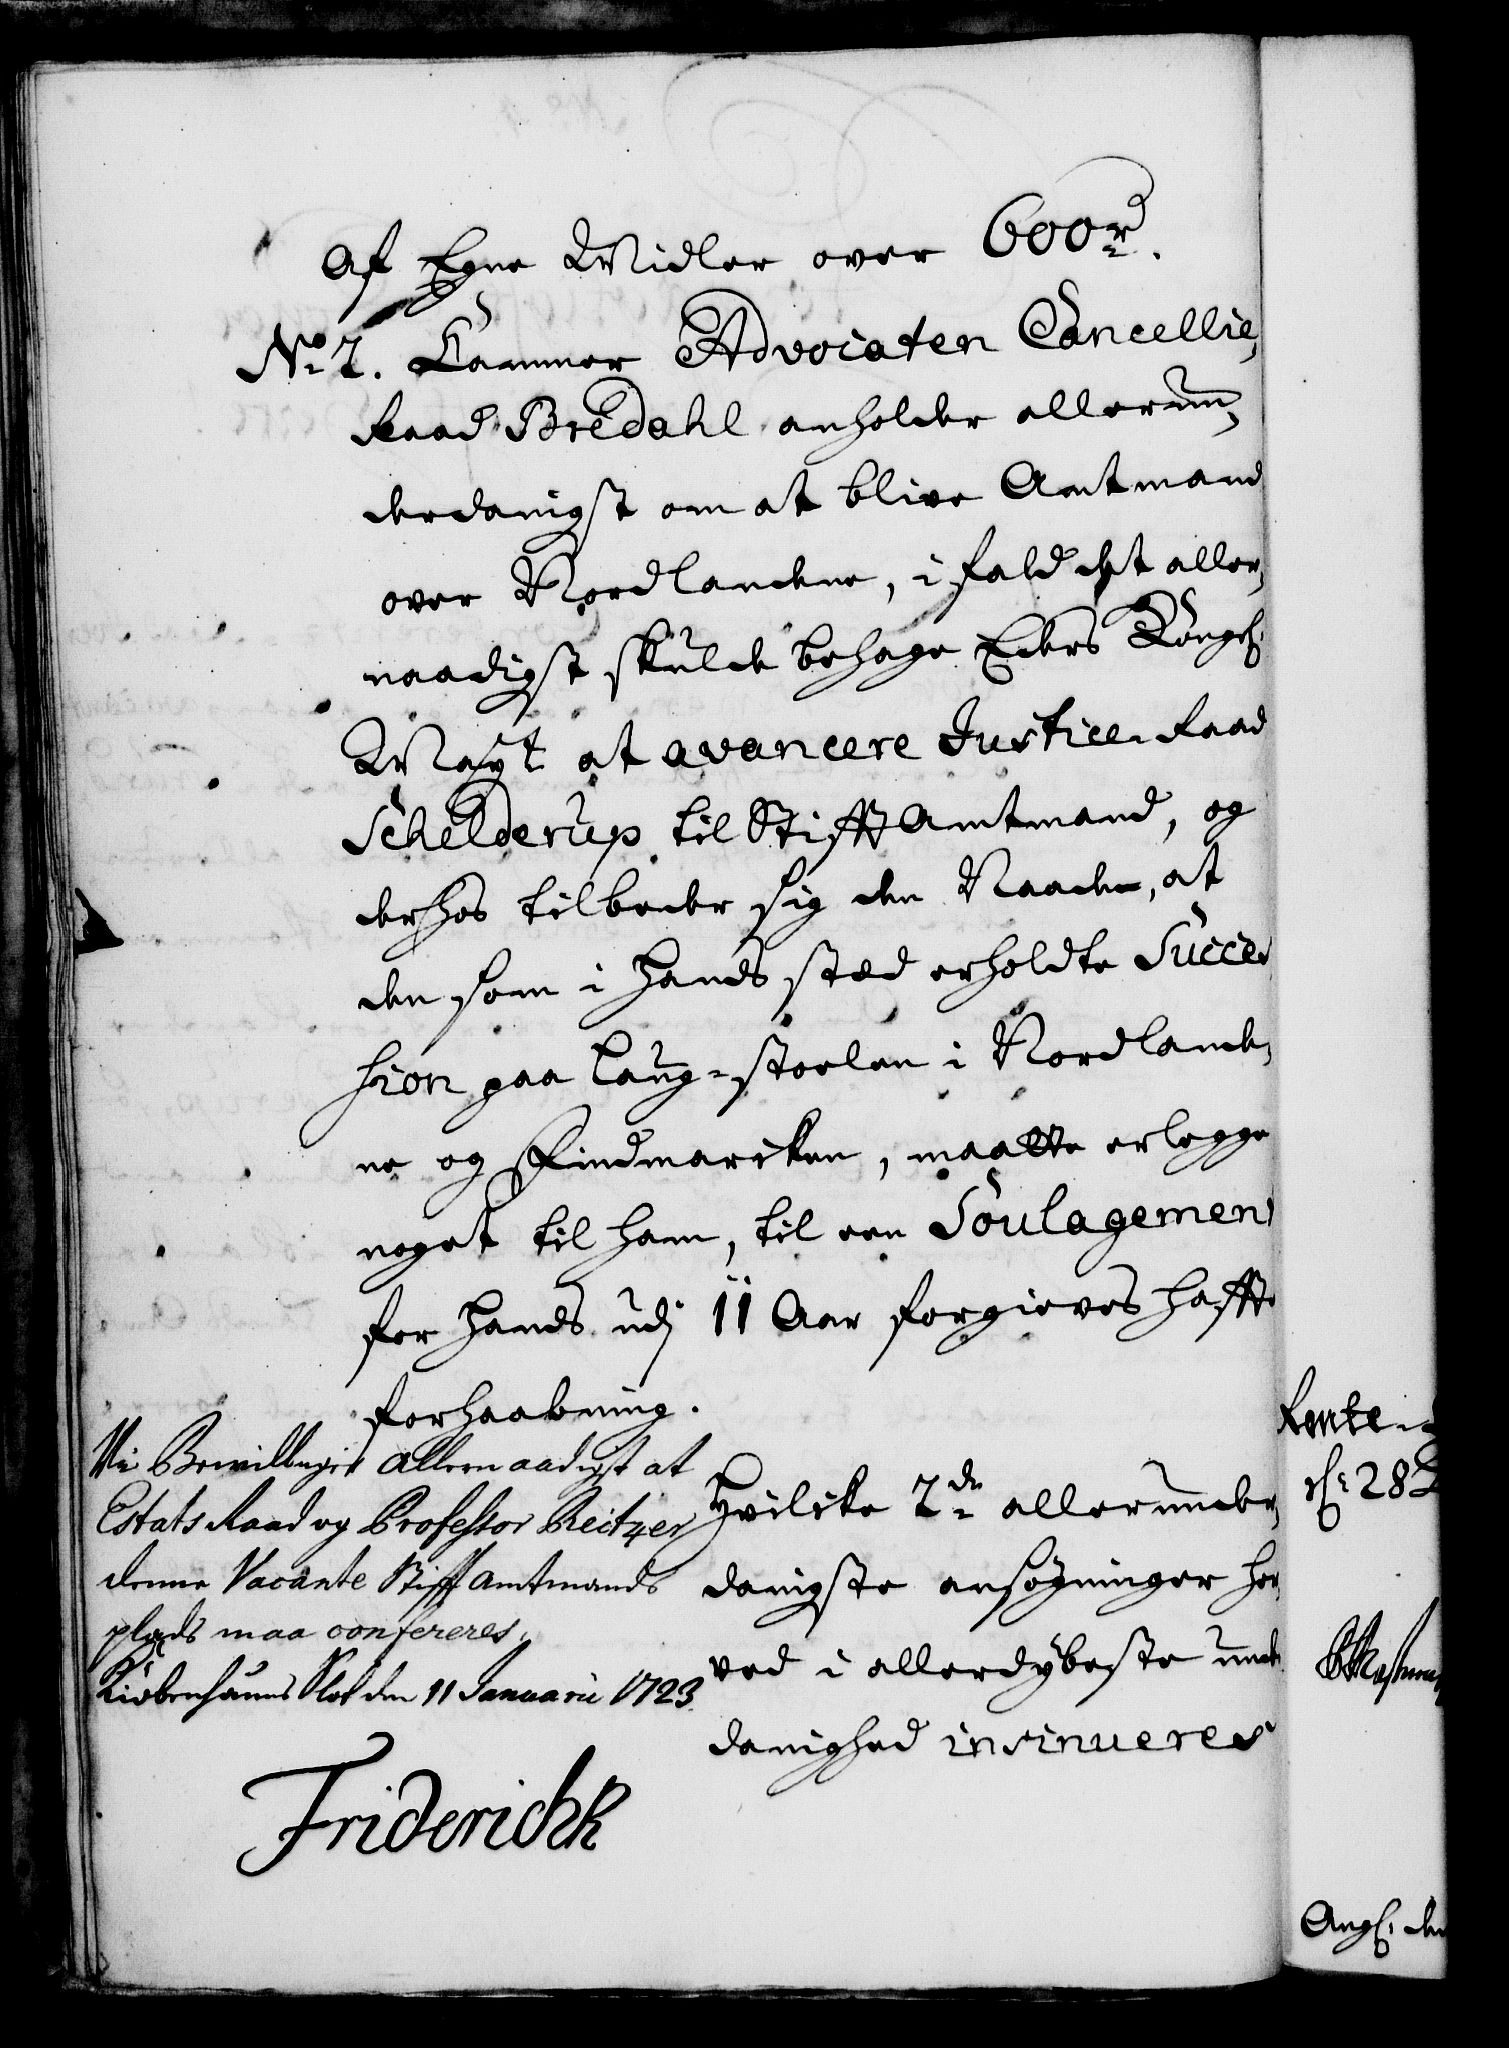 af Egne Midler over 600 rd.
No 2. Cammer Advocaten Cancellie,
Raad Bredahl anholder allerun,
derdanigst om at blive Amtmand
over Nordlandene, i fald det aller,
naadigst skulde behage Eders Kongel:
Mayt at avancere Justice-Raad
Schelderup til Stifft Amtmand, og
derhos tilbeder sig den Naade, at
den som i hands sted erholdte Succes
sion paa Laug-stoelen i Nordlande,
ne og Findmarcken, maatte erlegge
noget til ham, til een Soulagement
for hands udj 11 Aar forgieves haffte
forhaabning.
Hvilcke 2de allerunder,
danigste ansøgninger her,
ved i allerdybeste under
danighed insinueres
Vi Bewillger allernaadigst at
Estats Raad og Professor Reitzer
denne Vacante Stifft amtmands
plads maa confereres,
Kiøbenhauns Slot den 11 Januarii 1723.
Friderich R
Rente-
28
Angl: den